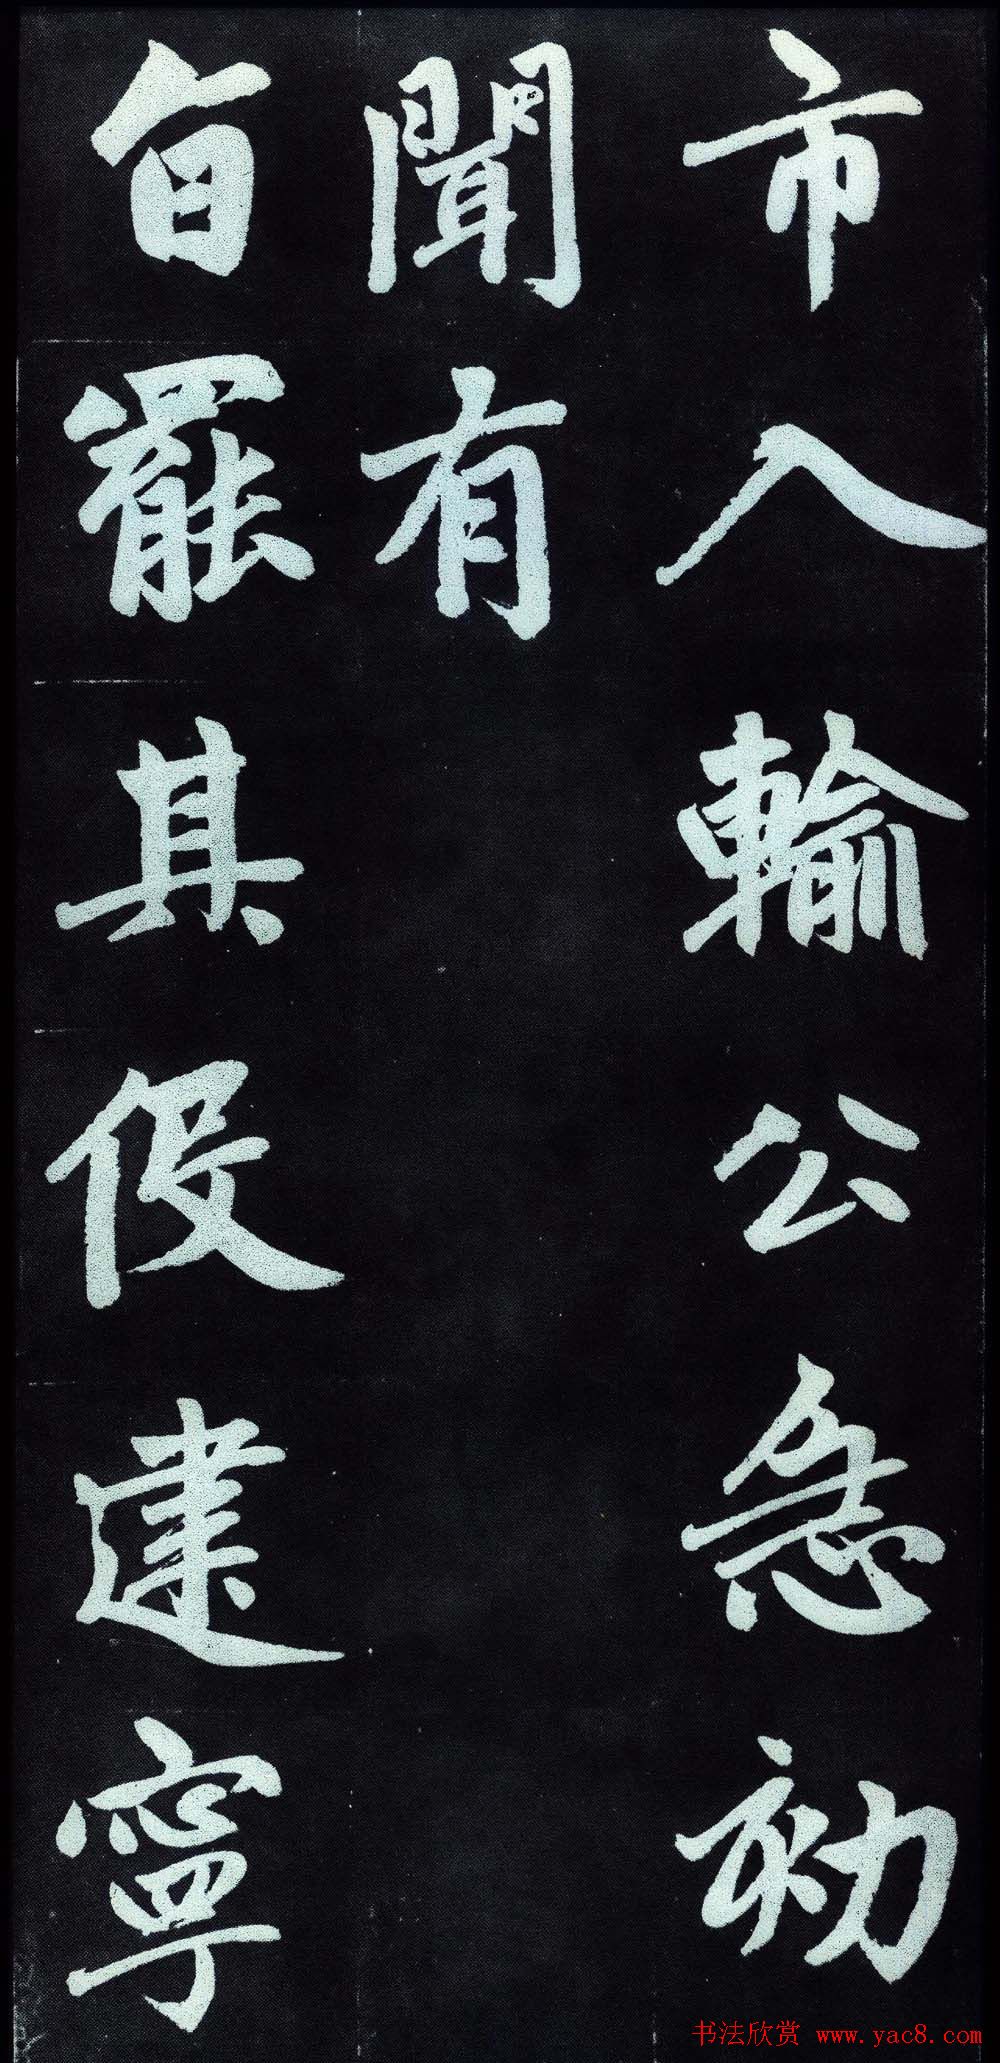 市入輸公急劾
聞有
旨罷其役建寧
书法欣赏 www.yac8.com